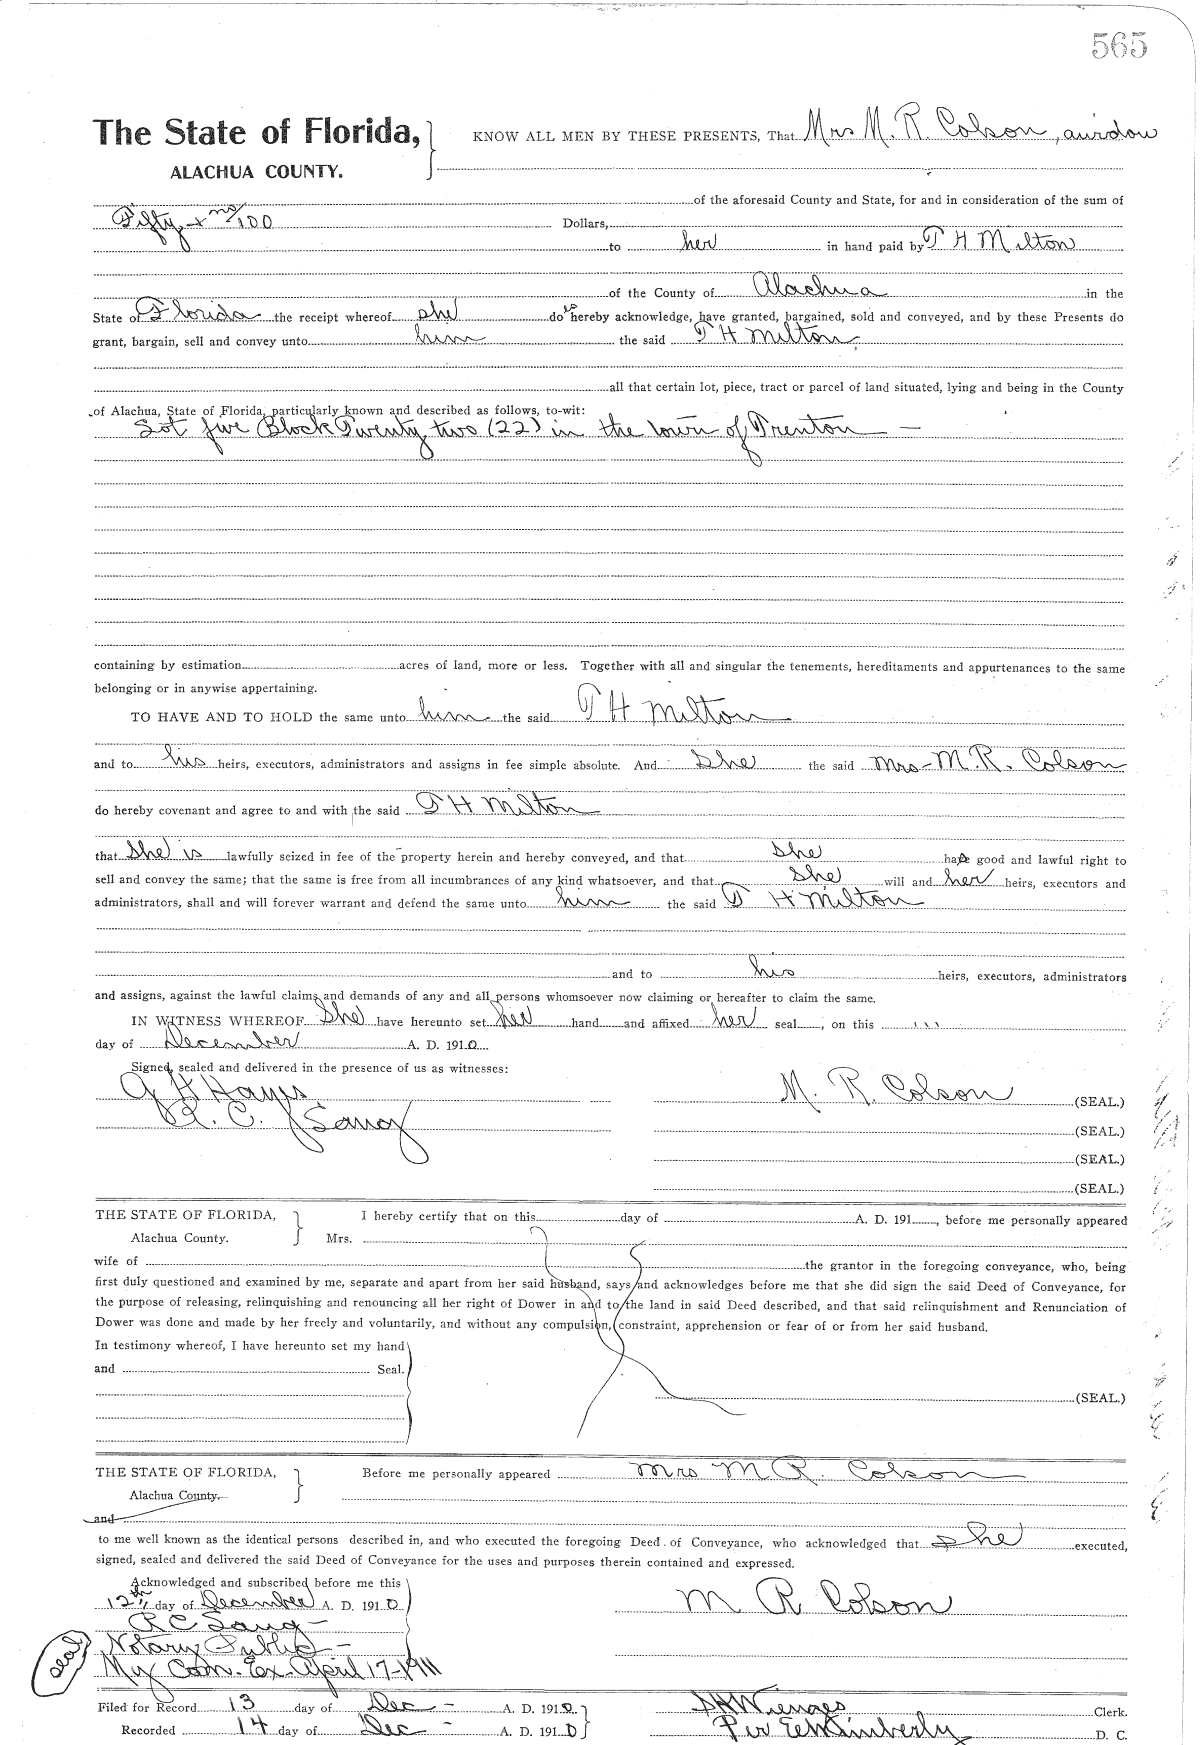 565
The State of Florida, KNOW ALL MEN BY THESE PRESENTS, That Mrs M. R. Colson, a widow
ALACHUA COUNTY.
of the aforesaid County and State, for and in consideration of the sum of
Fifty + no/100 Dollars,
to her in hand paid by T H Milton
of the County of Alachua in the
State of Florida the receipt whereof she does hereby acknowledge, have granted, bargained, sold and conveyed, and by these Presents do
grant, bargain, sell and convey unto him the said T H Milton
all that certain lot, piece, tract or parcel of land situated, lying and being in the County
of Alachua, State of Florida, particularly known and described as follows, to-wit:
Lot five Block Twenty two (22) in the town of Trenton —
containing by estimation acres of land, more or less. Together with all and singular the tenements, hereditaments and appurtenances to the same
belonging or in anywise appertaining.
TO HAVE AND TO HOLD the same unto him the said T H Milton
and to his heirs, executors, administrators and assigns in fee simple absolute. And she the said Mrs M. R. Colson
do hereby covenant and agree to and with the said T H Milton
that she is lawfully seized in fee of the property herein and hereby conveyed, and that she has good and lawful right to
sell and convey the same; that the same is free from all incumbrances of any kind whatsoever, and that she will and her heirs, executors and
administrators, shall and will forever warrant and defend the same unto him the said T H Milton
and to his heirs, executors, administrators
and assigns, against the lawful claims and demands of any and all persons whomsoever now claiming or hereafter to claim the same.
IN WITNESS WHEREOF She have hereunto set her hand and affixed her seal, on this
day of December A. D. 1910
Signed, sealed and delivered in the presence of us as witnesses:
G H Hayes M. R. Colson (SEAL.)
R. C. (SEAL.)
(SEAL.)
(SEAL.)
THE STATE OF FLORIDA, I hereby certify that on this day of A. D. 191 , before me personally appeared
Alachua County. Mrs.
wife of the grantor in the foregoing conveyance, who, being
first duly questioned and examined by me, separate and apart from her said husband, says and acknowledges before me that she did sign the said Deed of Conveyance, for
the purpose of releasing, relinquishing and renouncing all her right of Dower in and to the land in said Deed described, and that said relinquishment and Renunciation of
Dower was done and made by her freely and voluntarily, and without any compulsion, constraint, apprehension or fear of or from her said husband.
In testimony whereof, I have hereunto set my hand
and Seal.
(SEAL.)
THE STATE OF FLORIDA, Before me personally appeared Mrs M R. Colson
Alachua County.
and
to me well known as the identical persons described in, and who executed the foregoing Deed of Conveyance, who acknowledged that she executed,
signed, sealed and delivered the said Deed of Conveyance for the uses and purposes therein contained and expressed.
Acknowledged and subscribed before me this
12th day of December A. D. 1910 M R Colson
R C
Notary Public
seal
My Com. Ex. April 17-1911
Filed for Record 13 day of Dec A. D. 1910 S H Wienges Clerk.
Recorded 14 day of Dec A. D. 1910 Per E Wimberly D. C.